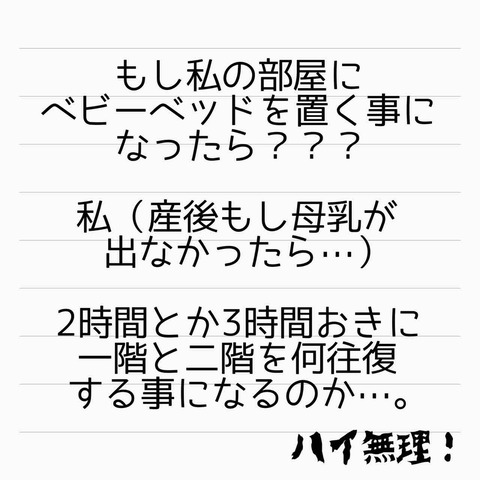 もし私の部屋に
ベビーベッドを置く事に
なったら？？？
私（産後もし母乳が
出なかったら…）
2時間とか3時間おきに
一階と二階を何往復
する事になるのか…。
ハイ無理！